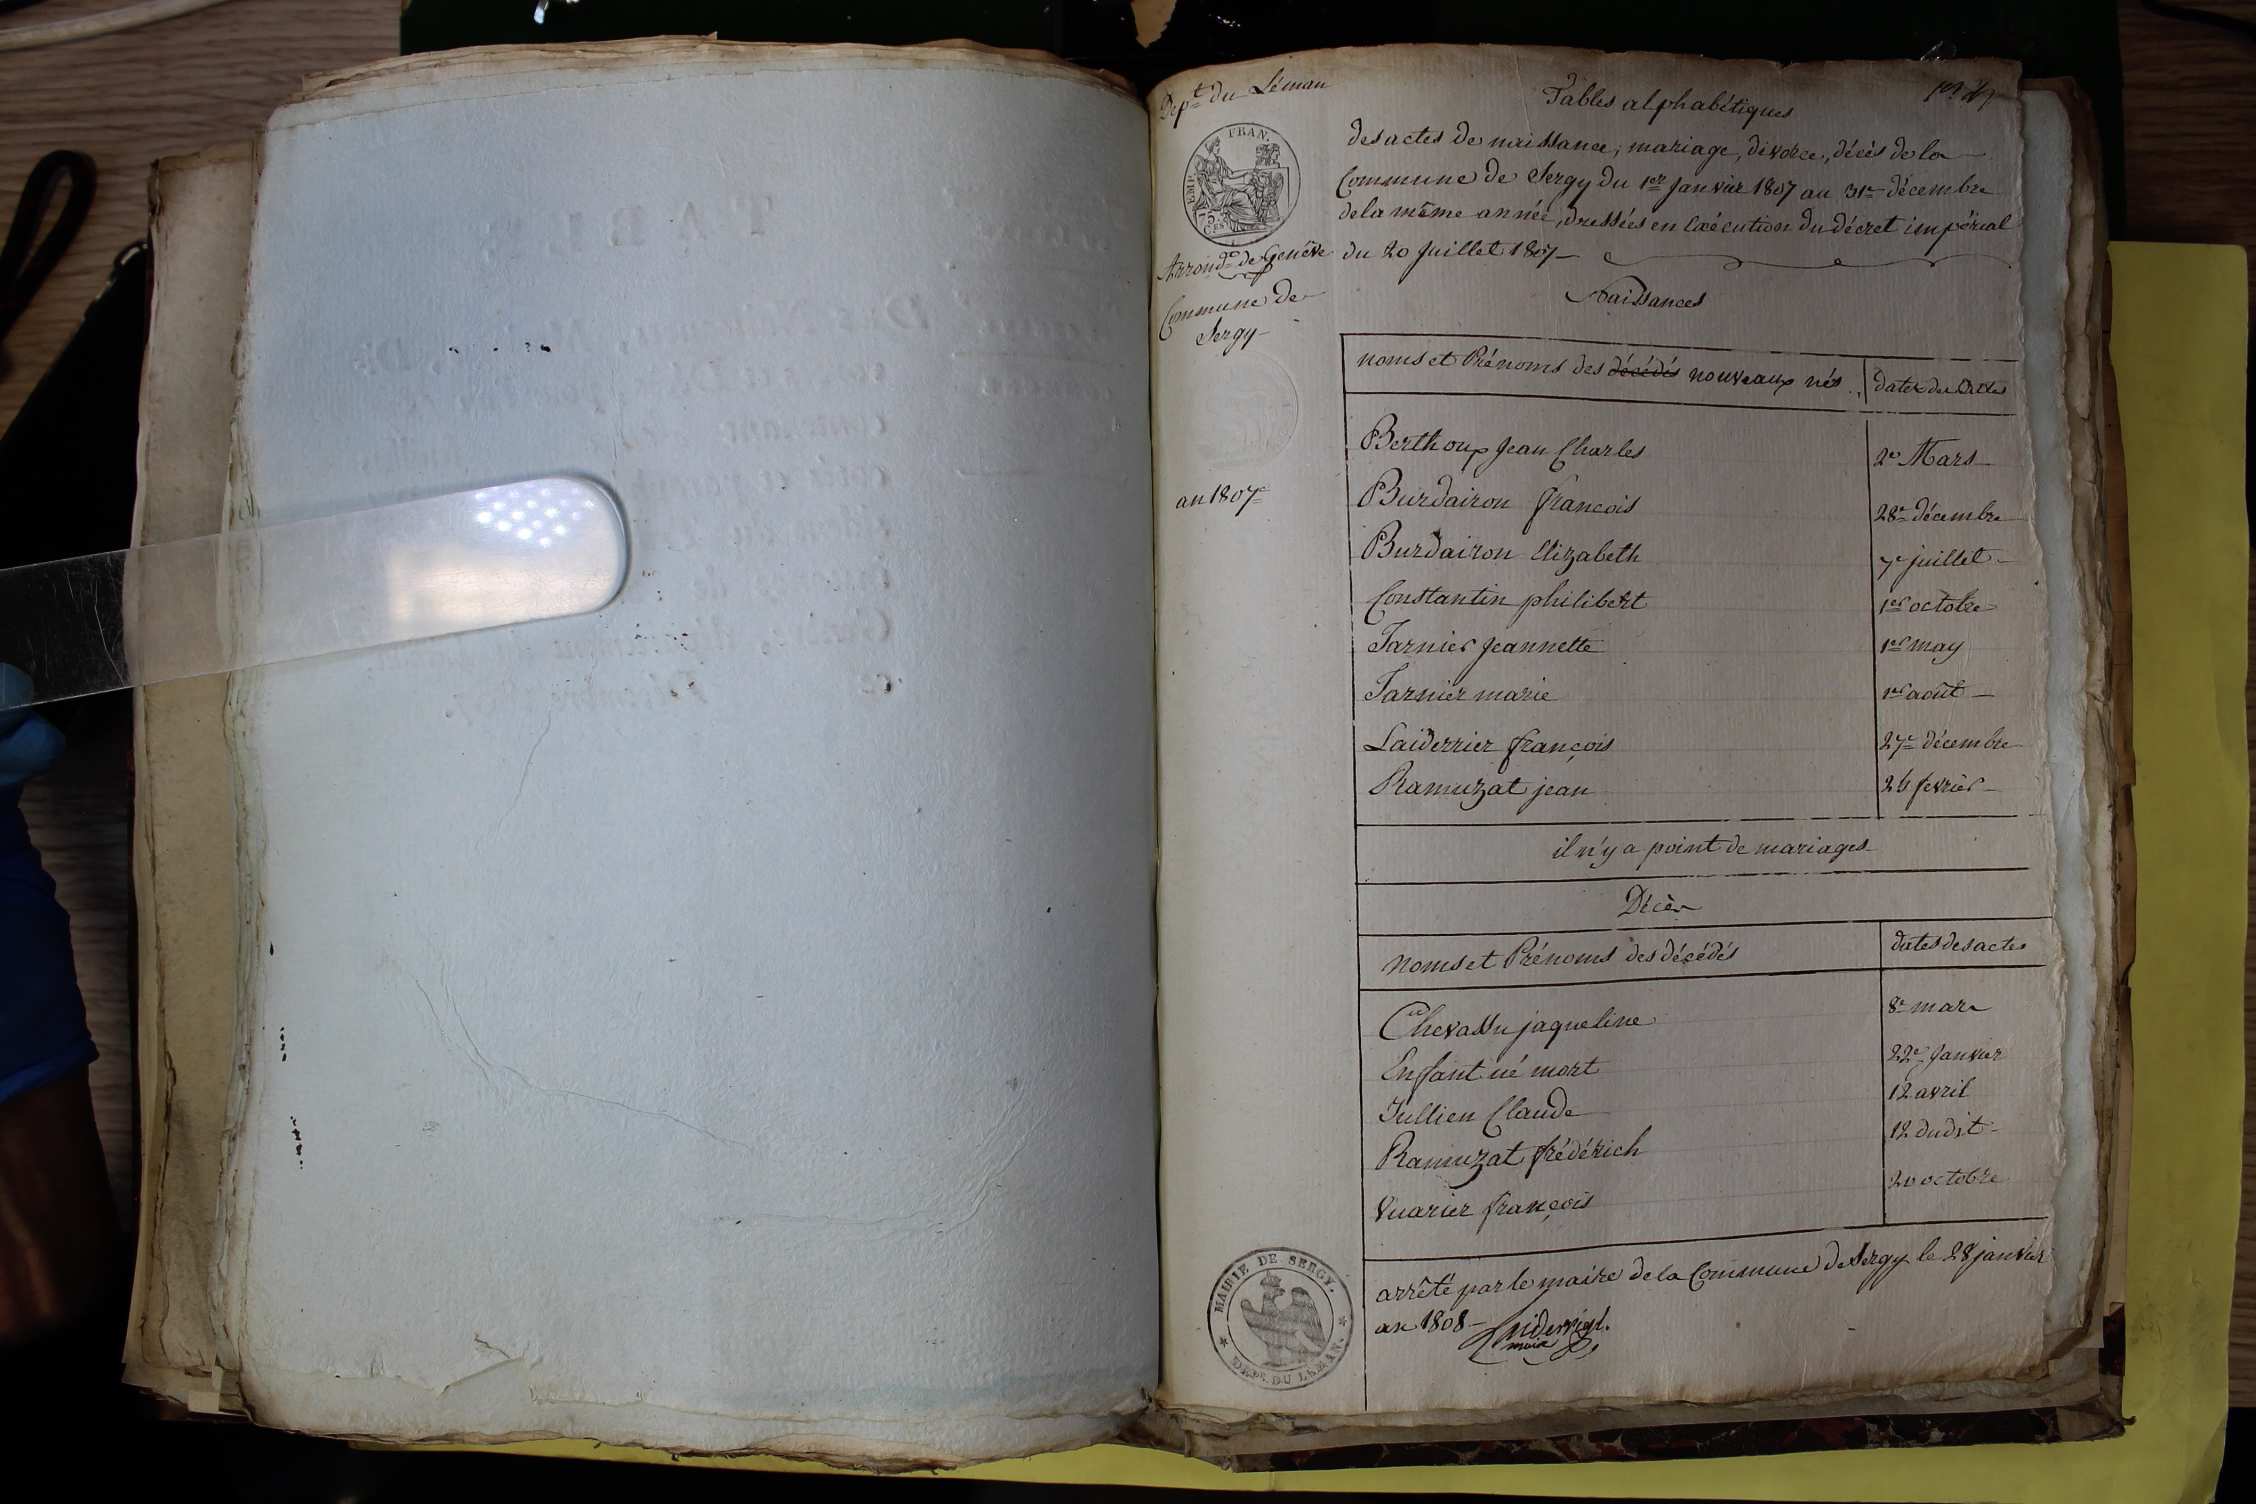 Dep.t du Léman
Tables alphabétiques
EMP. FRAN.
75.
C.ES
des actes de naissance, mariage, divorce, décès de la
Commune de Sergy du 1er Janvier 1807 au 31e décembre
de la même année, dressées en exécution du décret impérial
du 20 Juillet 1807
Arrond.t de Genève
Commune de
Sergy
Naissances
noms et Prénoms des décédés nouveaux nés
dates des Actes
an 1807
Berthoux Jean Charles 2e Mars
Burdairon françois 28e décembre
Burdairon Elizabeth 7e juillet
Constantin philibert 1er octobre
Jarnier Jeannette 1er may
Jarnier marie 1er août
Laiderrier françois 27e décembre
Ramuzat jean fevrier
il n'y a point de mariages
Décès
noms et Prénoms des décédés dates des actes
Chevassu jaqueline 8e mars
Enfant né mort 22e Janvier
Jullien Claude 12 avril
Ramuzat frédérich 12 dudit
Vuarier françois 20 octobre
arrêté par le maire de la Commune de Sergy le 28 janvier
an 1808
Laiderrier
maire
MAIRIE DE SERGY.
DÉP. DU LÉMAN.